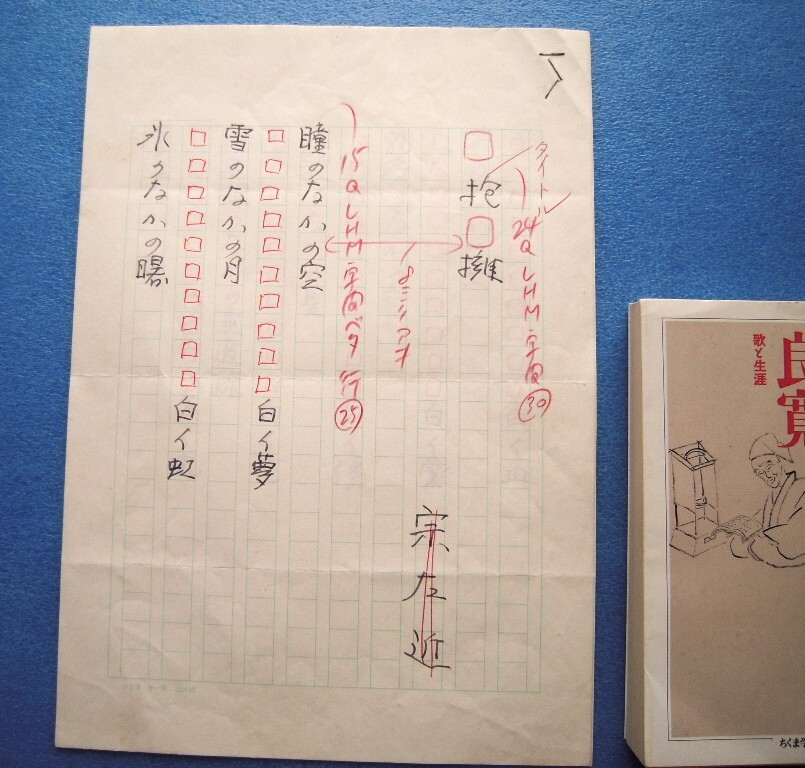 タイトル
24Q LHM 字間㉚
抱擁
宗左近
15Q LHM 字間ベタ 行㉕
瞳のなかの空
白イ夢
雪のなかの月
白イ虹
氷のなかの曙
良寛
歌と生涯
ちくま学